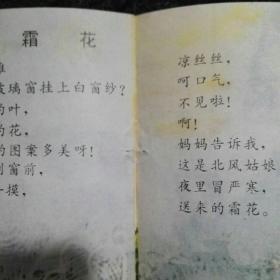 霜花
谁
玻璃窗挂上白窗纱?
的叶,
的花,
的图案多美呀!
到窗前,
一摸,
凉丝丝,
呵口气,
不见啦!
啊!
妈妈告诉我,
这是北风姑娘
夜里冒严寒,
送来的霜花。